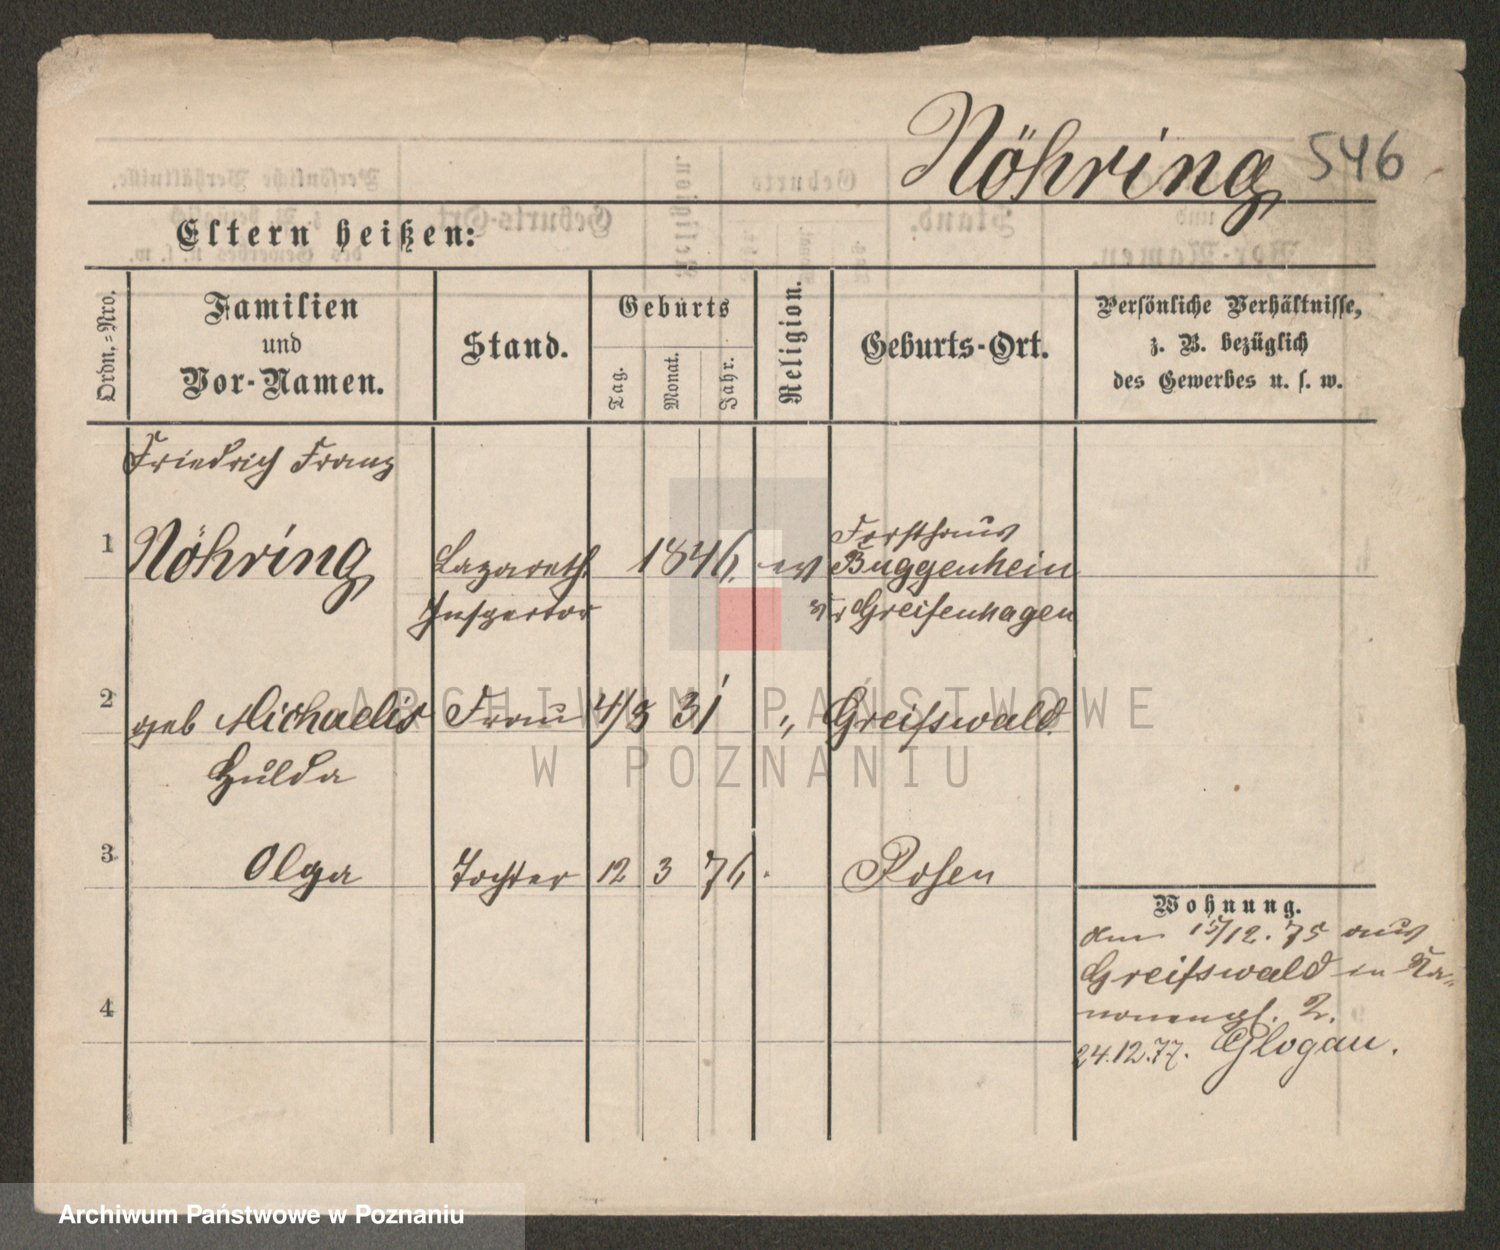 Nöhring 546
Eltern heißen:
Ordn.-Nro.
Familien
und
Vor-Namen.
Stand.
Geburts
Tag.
Monat.
Jahr.
Religion.
Geburts-Ort.
Persönliche Verhältnisse,
z. B. bezüglich
des Gewerbes u. s. w.
Friedrich Franz
1 Nöhring Lazareth 1846 ev
Inspector
Forsthaus
Buggenhein
Greifenhagen
2 geb Michaelis Frau 4/8 31 " Greifswald
Hulda
3 Olga Tochter 12 3 76 Posen
4
Wohnung.
am 15/12. 75 aus
Greifswald in Ka-
nonenpl. 2.
24.12.77. Glogau.
ARCHIWUM PAŃSTWOWE
W POZNANIU
Archiwum Państwowe w Poznaniu